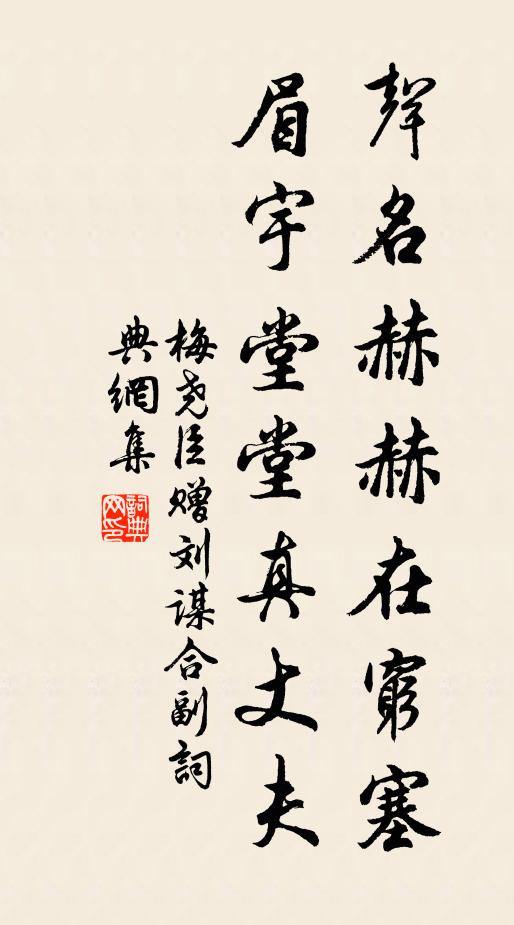 聲名赫赫在窮塞
眉宇堂堂真丈夫
梅尧臣赠刘谋合副詞
典網集
詞典网印